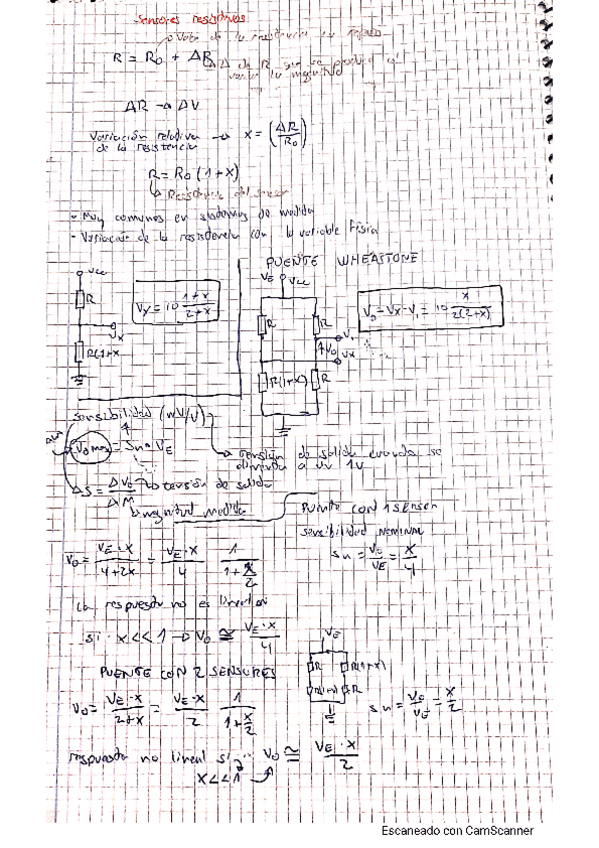 Sensores resistivos
Valor de la resistencia en reposo
R = R0 + ΔR
Δ de R que se produce al
variar la magnitud
ΔR → ΔV
Variación relativa → x = (ΔR/R0)
de la resistencia
R = R0 (1+x)
Resistencia del sensor
- Muy comunes en sistemas de medida
- Variación de la resistencia con la variable física
Vcc
R
Vx
R(1+x
Vx = 10 (1+x)/(2+x)
PUENTE WHEASTONE
VE Vcc
R R
V1
V0 Vx
R(1+x) R
V0 = Vx - V1 = 10 x/2(2+x)
Sensibilidad (mV/V)
V0 max = Sn · VE
tensión de salida cuando se
alimenta a 1V
ΔS = ΔV0/ΔM → tensión de salida
magnitud medida
PUENTE CON 1 SENSOR
sensibilidad NOMINAL
Sn = V0/VE = x/4
V0 = VE·x/(4+2x) = VE·x/4 1/(1+x/2)
La respuesta no es lineal
si x<<1 → V0 ≅ VE·x/4
PUENTE CON 2 SENSORES
VE
R R(1+x)
R
V0 = VE·x/(2+x) = VE·x/2 1/(1+x/2)
Sn = V0/VE = x/2
respuesta no lineal si V0 ≅ VE·x/2
x<<1
Escaneado con CamScanner